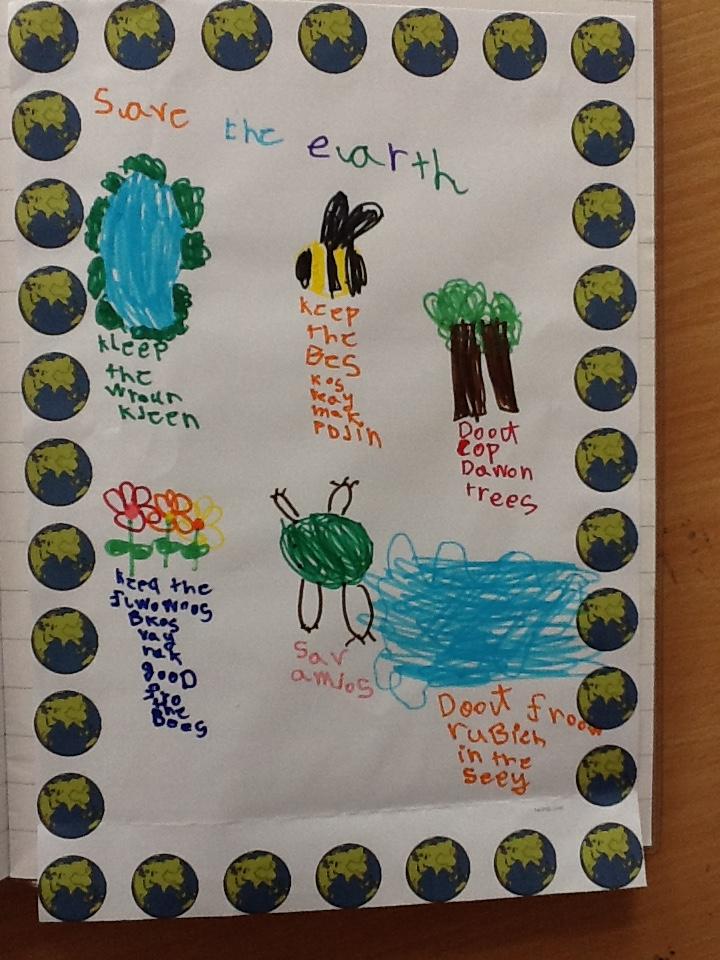 Save the earth
kleep
the
wroun
kleen
keep
the
Bes
kos
kay
mak
Polin
Doot
cop
Dawon
trees
keep the
flwowoos
Bkos
vay
mak
gooD
fro
the
Bees
Sav
amlos
Doot froow
ruBish
in the
seey